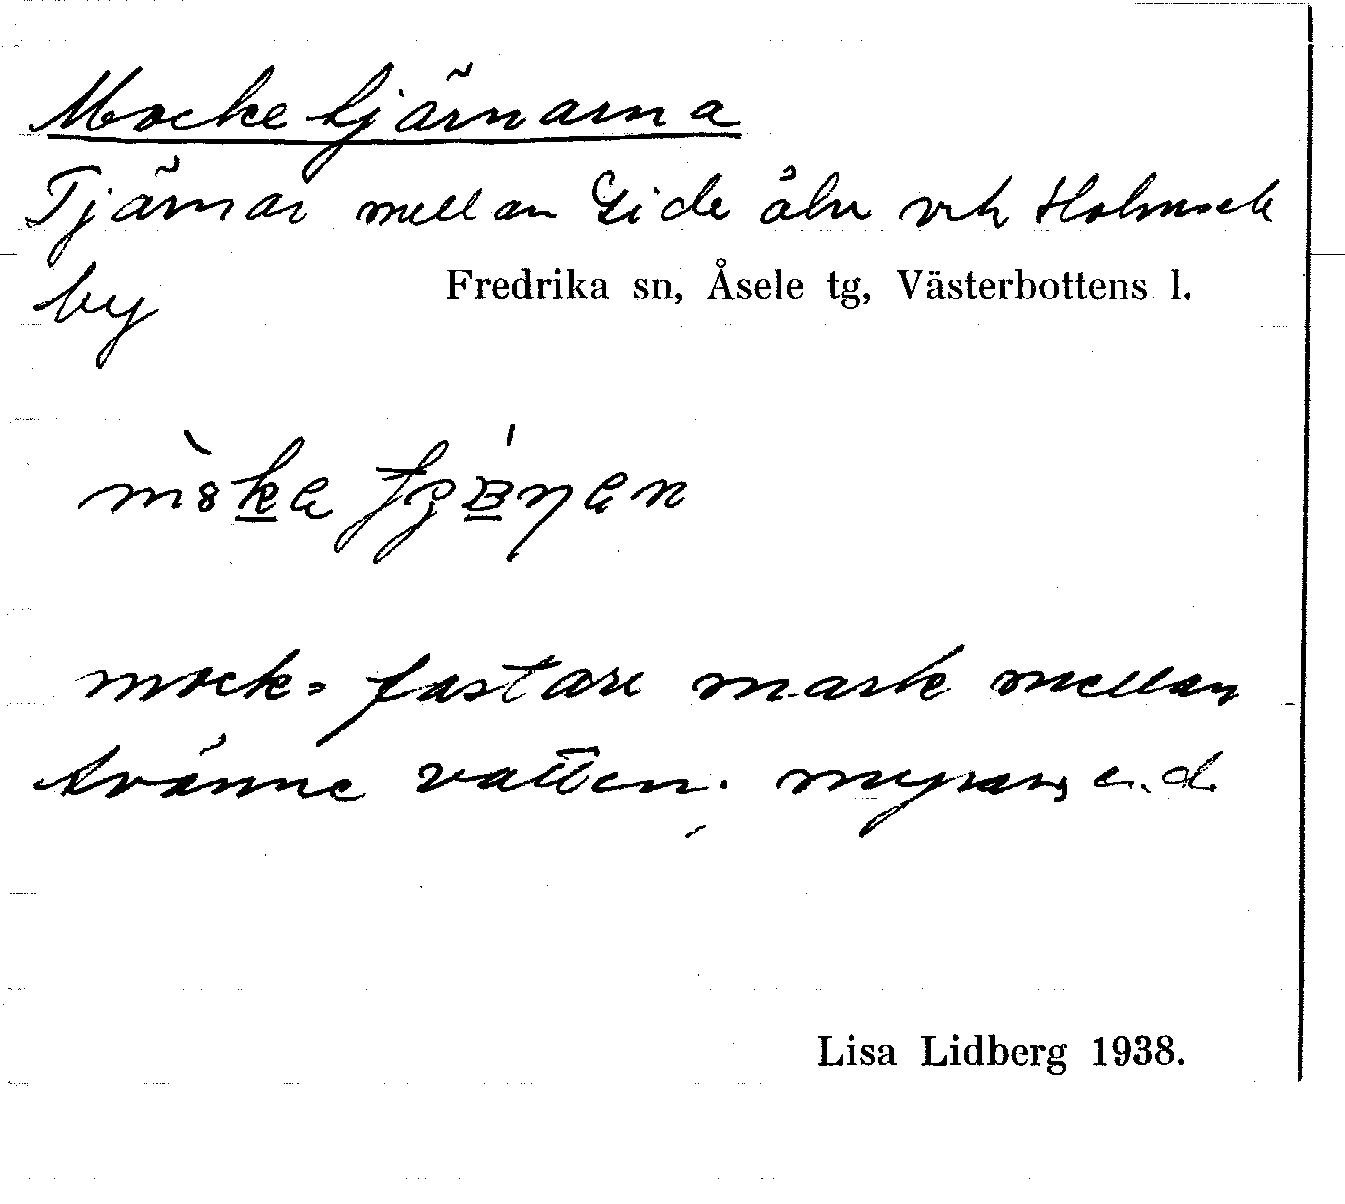 Mocketjärnarna
Tjärnar mellan Gide älv och Holmsele
by
Fredrika sn, Åsele tg, Västerbottens l.
mock = fastare mark mellan
tvänne vatten. myrar, e. d.
Lisa Lidberg 1938.